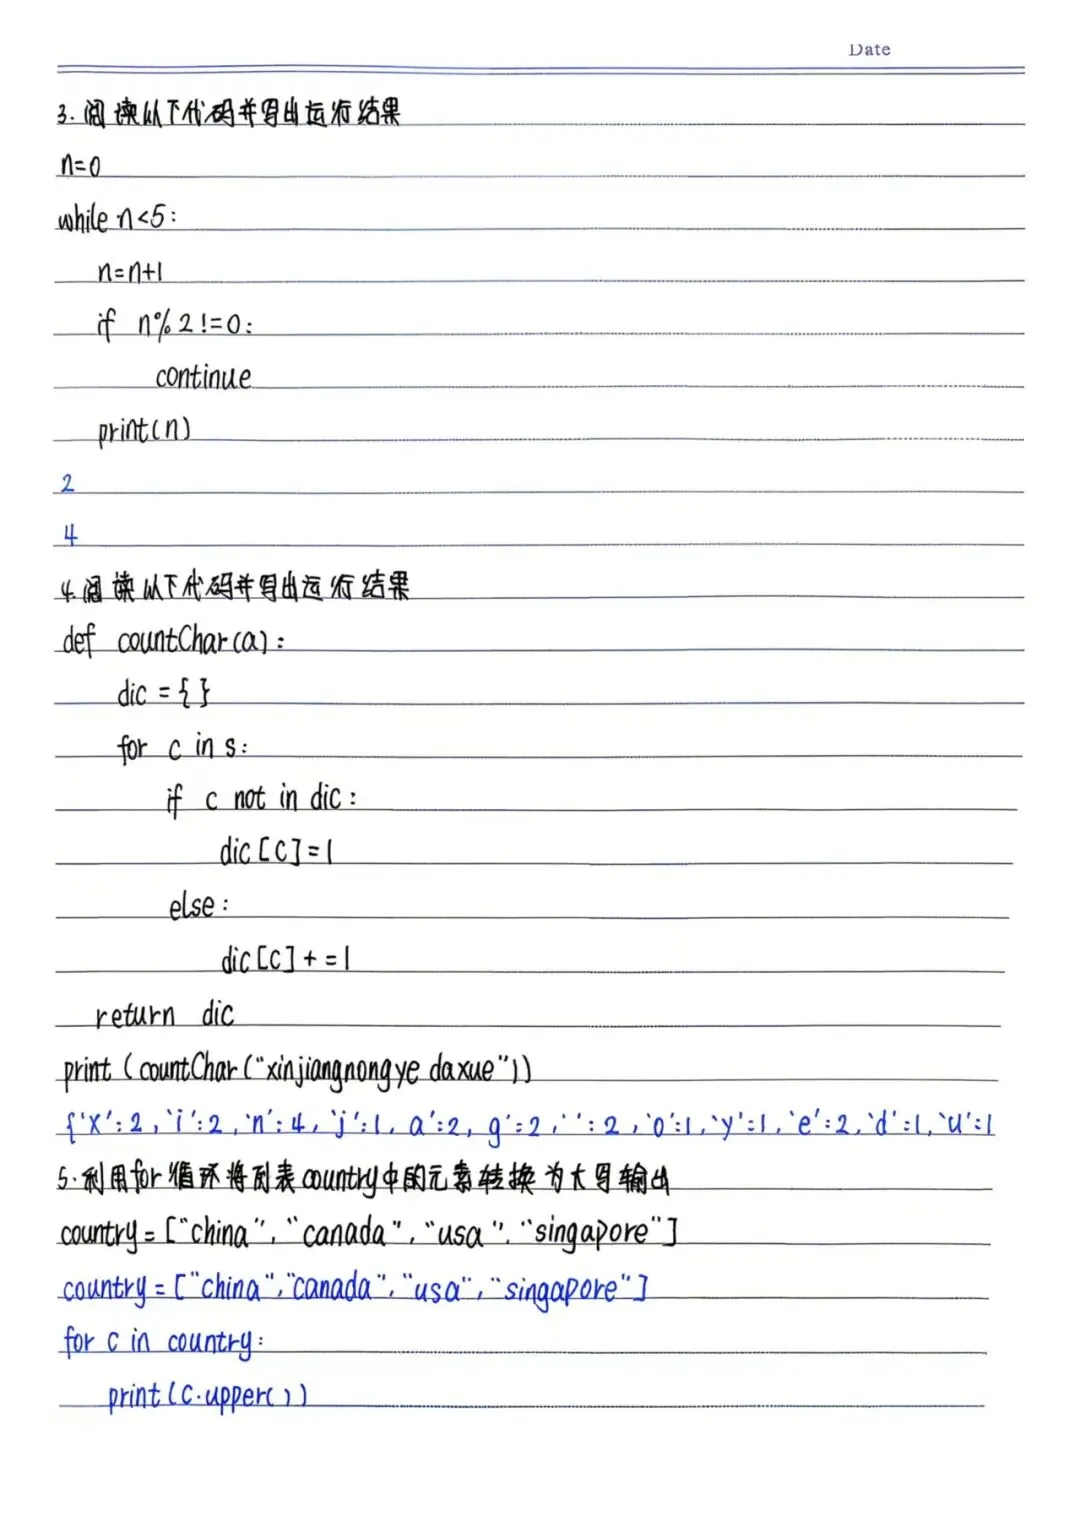 Date
3.阅读以下代码并写出运行结果
n=0
while n<5:
n=n+1
if n%2!=0:
continue
print(n)
2
4
4.阅读以下代码并写出运行结果
def countChar(a):
dic={}
for c in s:
if c not in dic:
dic[c]=1
else:
dic[c]+=1
return dic
print(countChar("xinjiangnongye daxue"))
{'x':2,'i':2,'n':4,'j':1,a':2,g':2,'':2,'o':1,'y':1,'e':2,'d':1,'u':1
5.利用for循环将列表country中的元素转换为大写输出
country=["china","canada","usa","singapore"]
country=["china","canada","usa","singapore"]
for c in country:
print(c.upper())